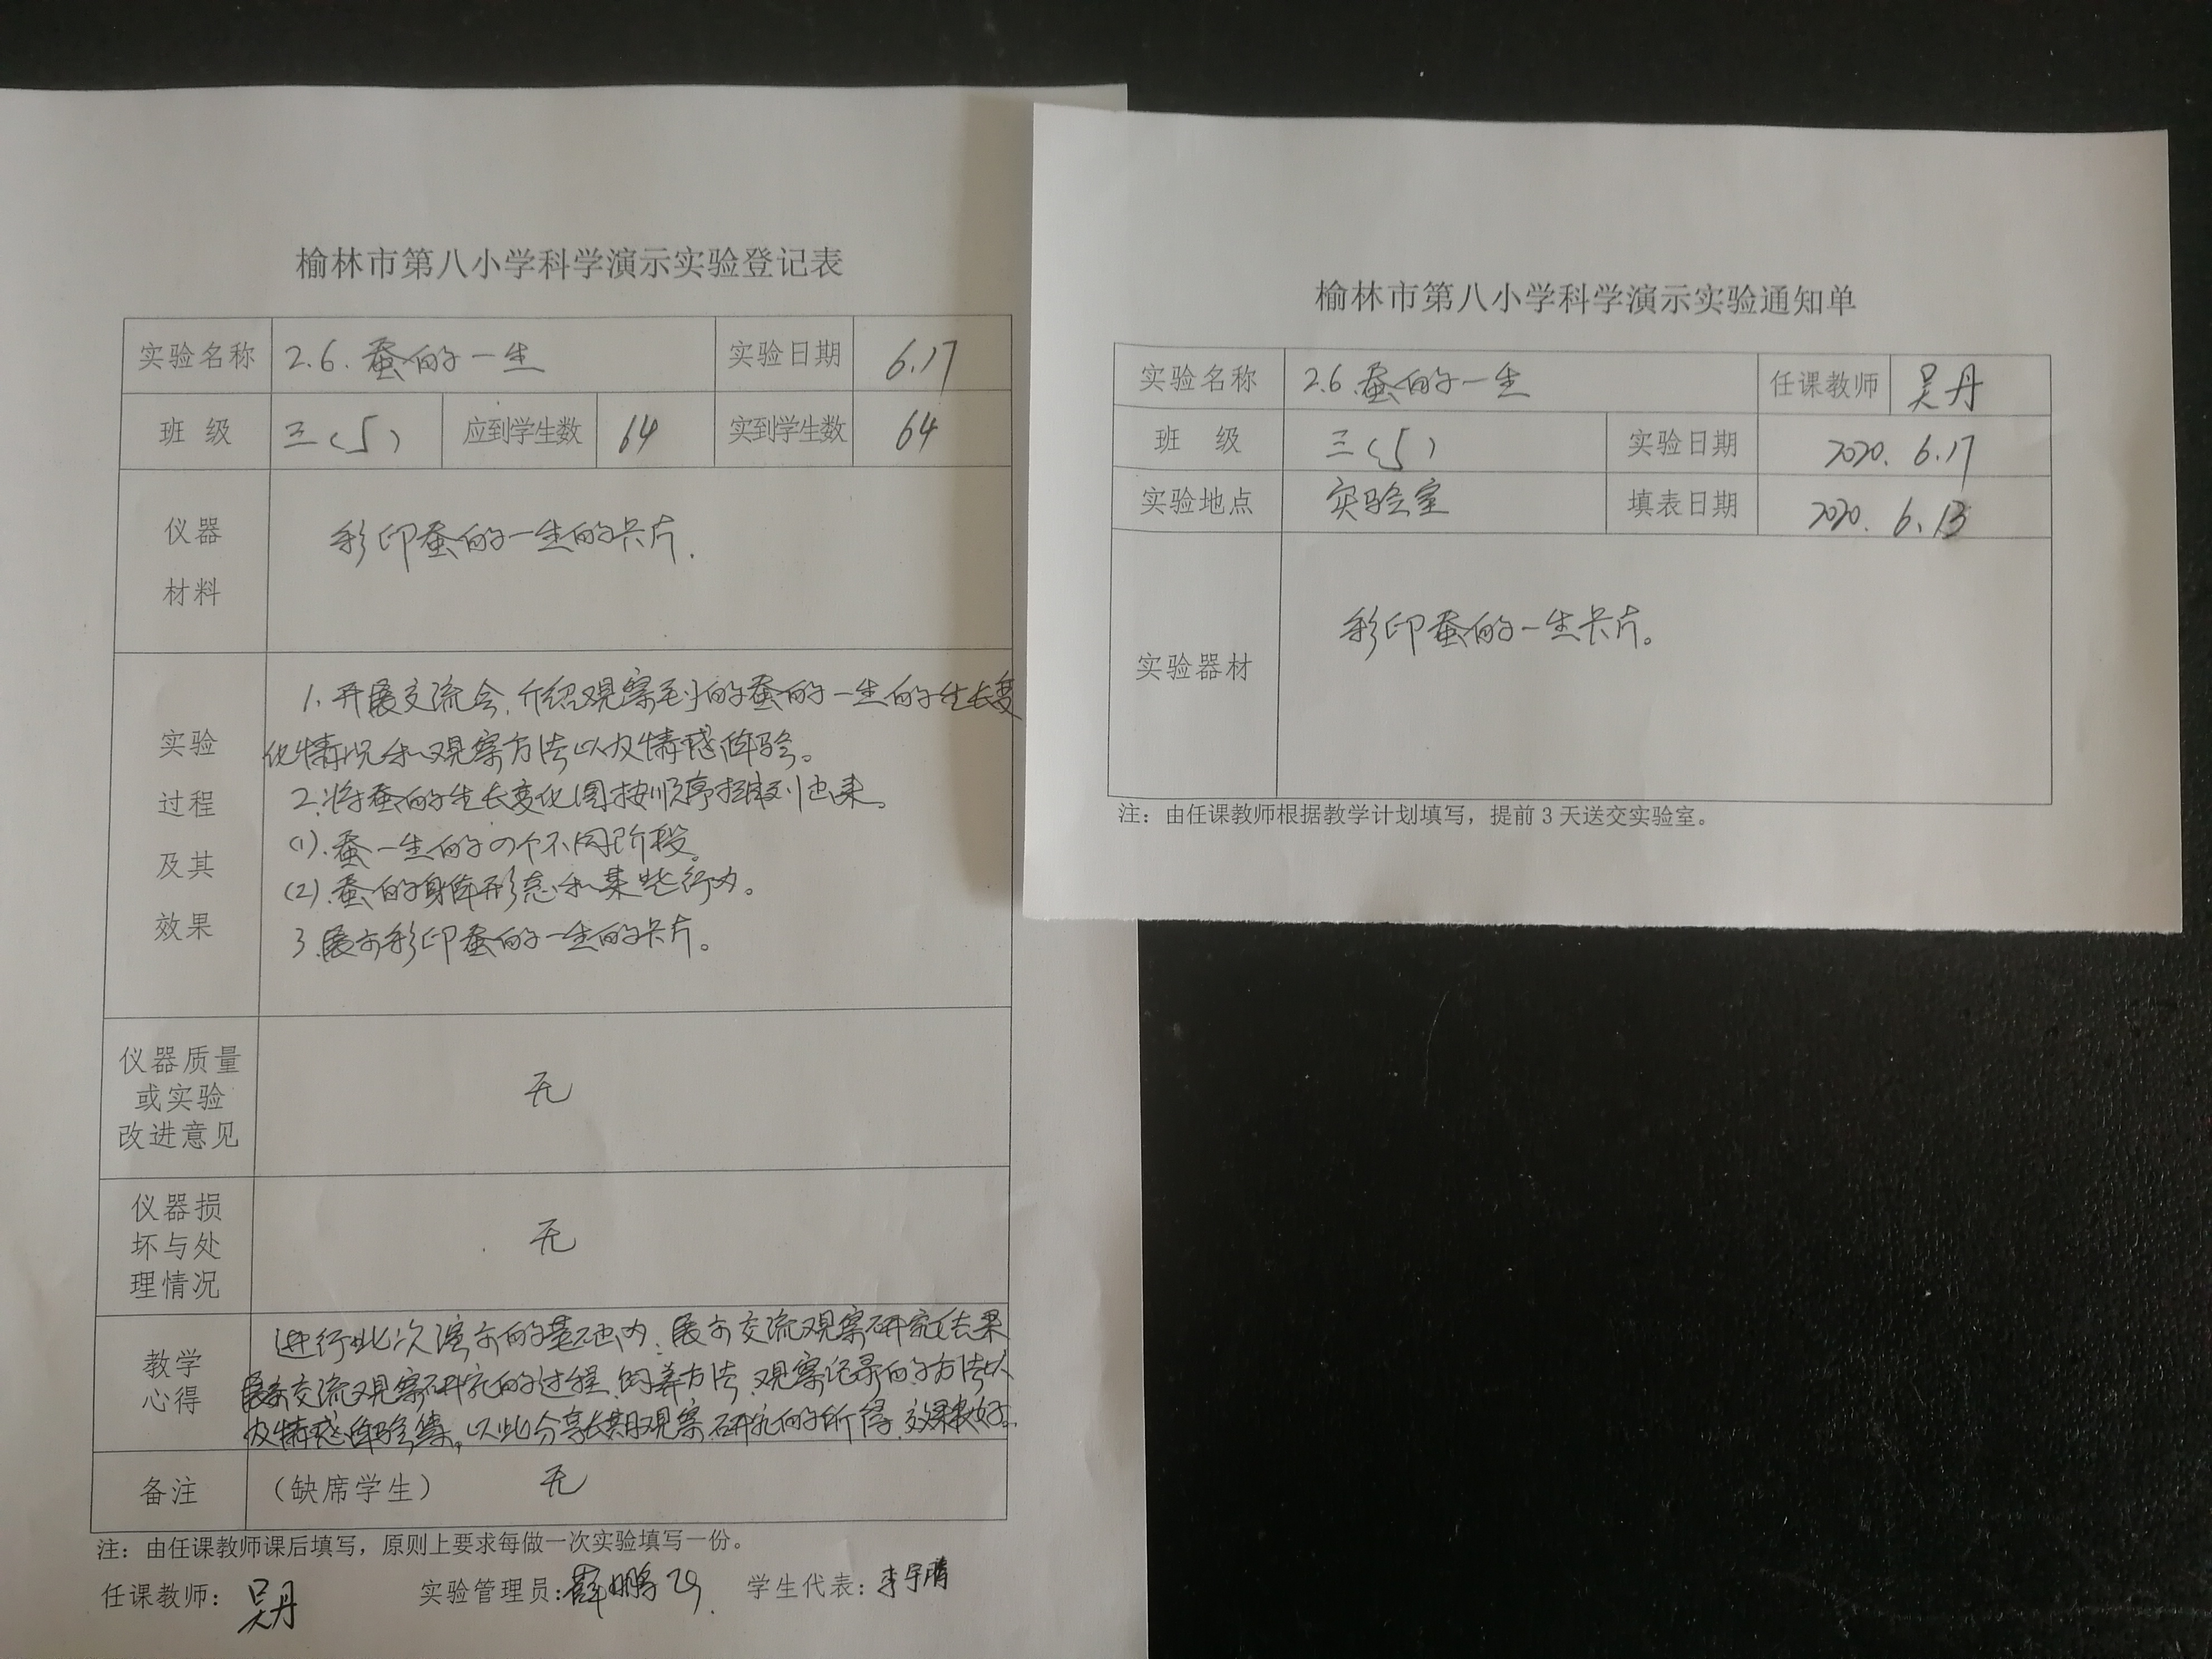 榆林市第八小学科学演示实验登记表
实验名称 2.6.蚕的一生 实验日期 6.17
班 级 三(5) 应到学生数 64 实到学生数 64
仪器
材料
彩印蚕的一生的卡片.
实验
过程
及其
效果
1.开展交流会,介绍观察到的蚕的一生的生长变
化情况和观察方法以及情感体验。
2.将蚕的生长变化图按顺序排列出来。
(1).蚕一生的四个不同阶段。
(2).蚕的身体形态和某些行为。
3.展示彩印蚕的一生的卡片。
仪器质量
或实验
改进意见
无
仪器损
坏与处
理情况
无
教学
心得
进行此次演示的基础为,展示交流观察研究结果
展示交流观察研究的过程、饲养方法、观察记录的方法以
及情感体验等。以此分享长期观察研究的所得,效果较好。
备注 (缺席学生) 无
注:由任课教师课后填写,原则上要求每做一次实验填写一份。
任课教师:吴丹 实验管理员:薛鹏 学生代表:李宇腾
榆林市第八小学科学演示实验通知单
实验名称 2.6.蚕的一生 任课教师 吴丹
班 级 三(5) 实验日期 2020.6.17
实验地点 实验室 填表日期 2020.6.13
实验器材 彩印蚕的一生卡片。
注:由任课教师根据教学计划填写,提前3天送交实验室。